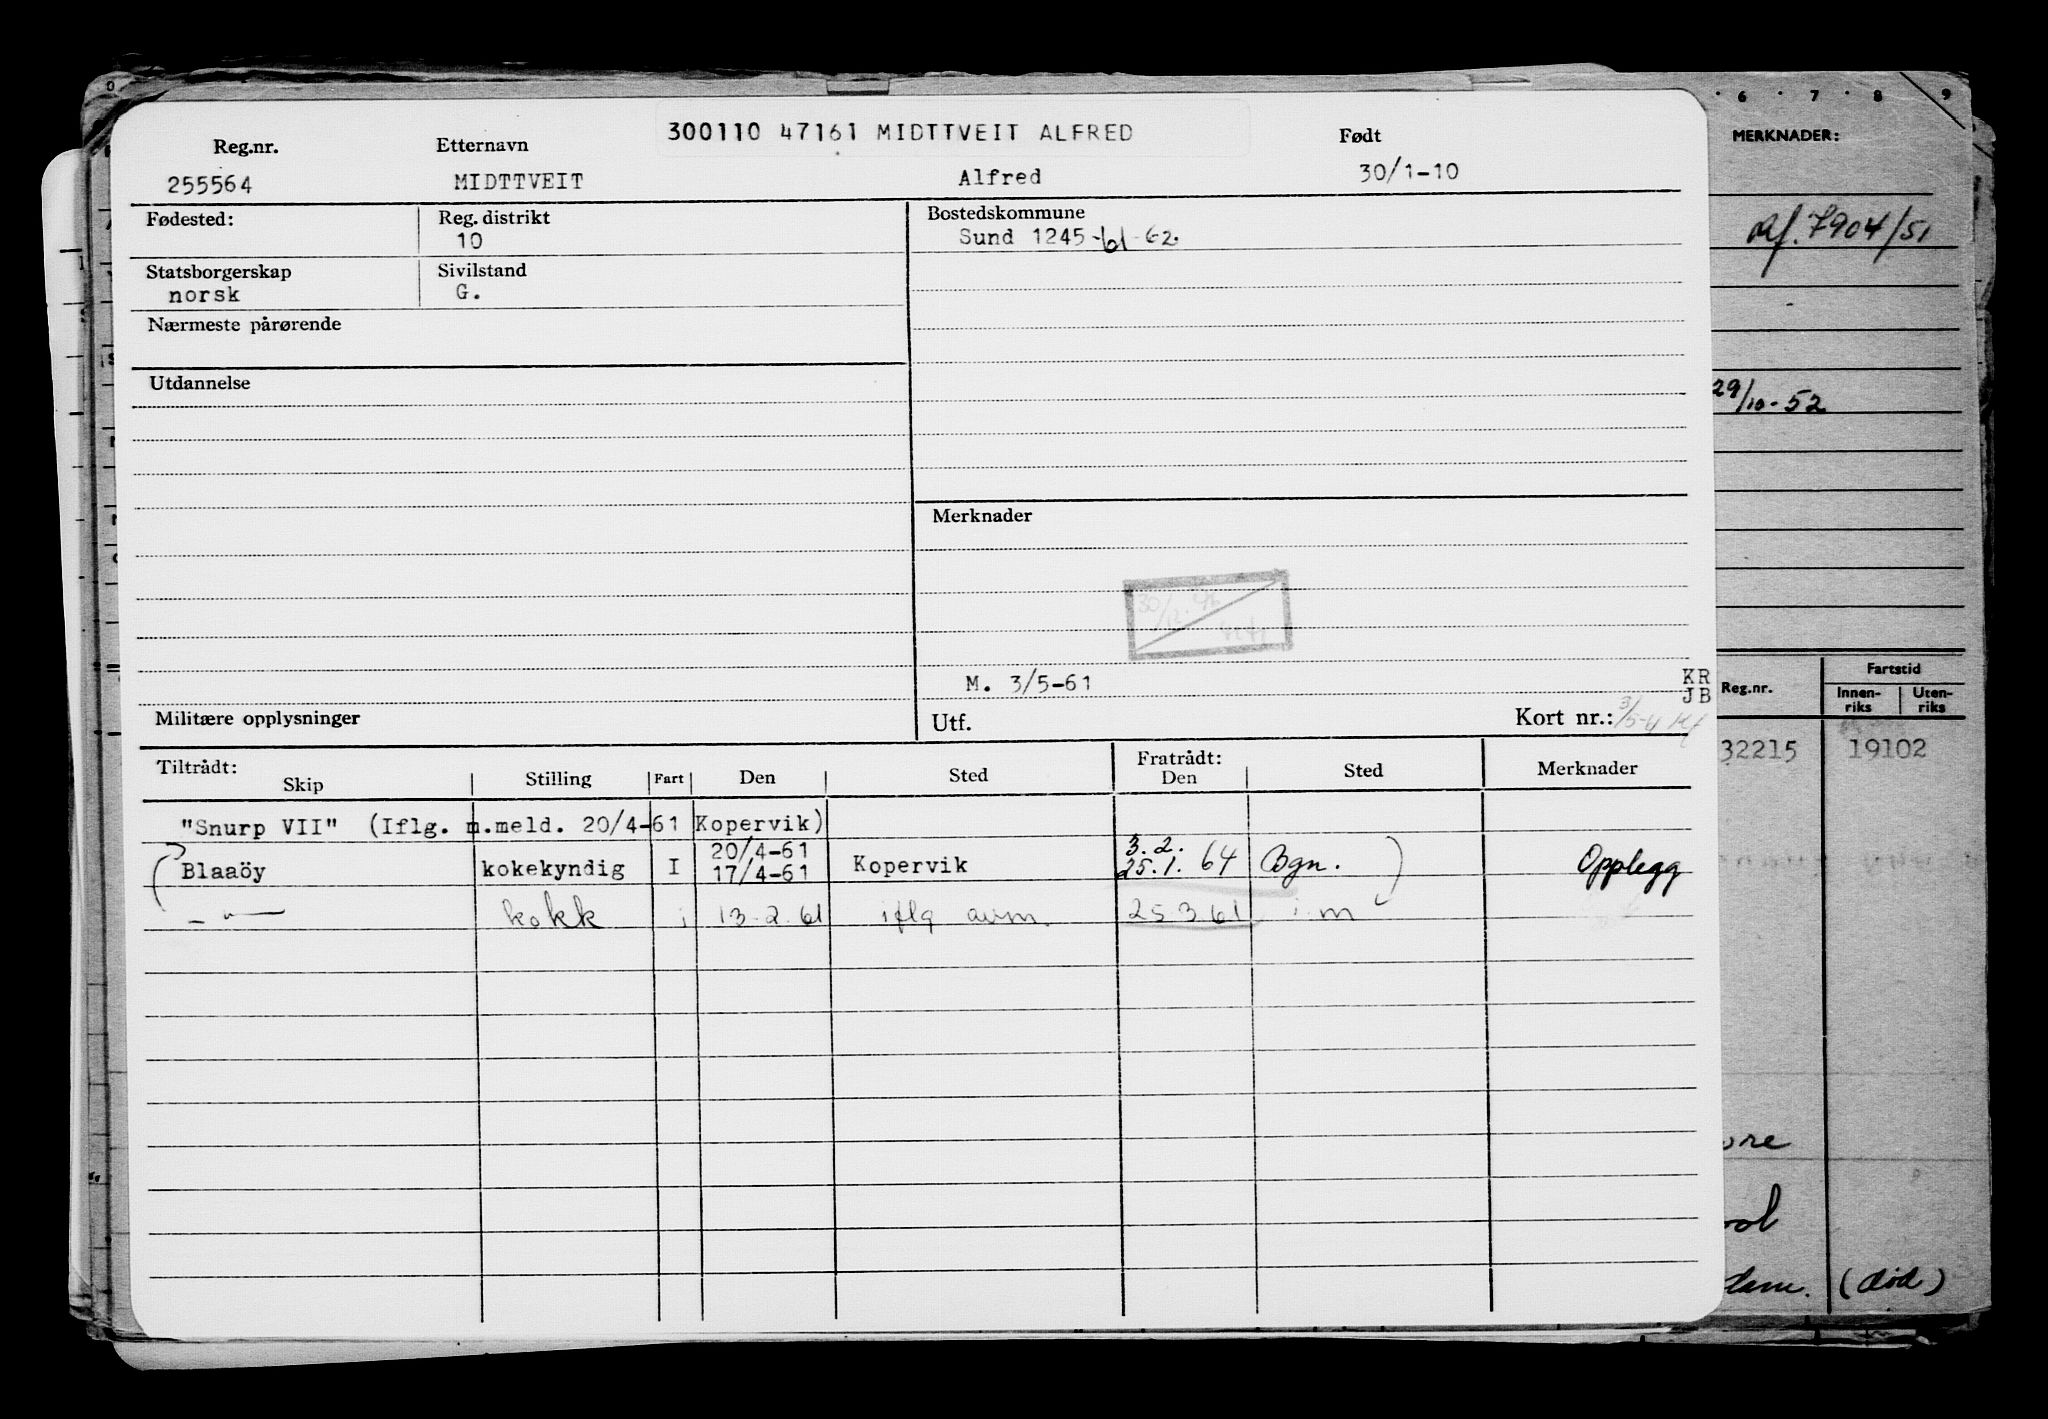 300110 47161 MIDTTVEIT ALFRED
Reg.nr. Etternavn Født
255564 MIDTTVEIT Alfred 30/1-10
Fødested: Reg. distrikt Bostedskommune
10 Sund 1245-61-62.
Statsborgerskap Sivilstand
norsk G.
Nærmeste pårørende
Utdannelse
Merknader
M. 3/5-61
KR
JB
Militære opplysninger Utf. Kort nr.:
Tiltrådt: Fratrådt:
Skip Stilling Fart Den Sted Den Sted Merknader
"Snurp VII" (Iflg. m.meld. 20/4-61 Kopervik)
20/4-61 3.2.
Blaaöy kokekyndig I 17/4-61 Kopervik 25.1. 64 Bgn. Opplegg
— " — kokk i 13-2-61 iflg avm. 25 3 61 i m
6 7 8 9
MERKNADER:
Rf. 7904/51
29/10-52
Reg.nr. Fartstid
Innen-riks Uten-riks
32215 19102
(død)